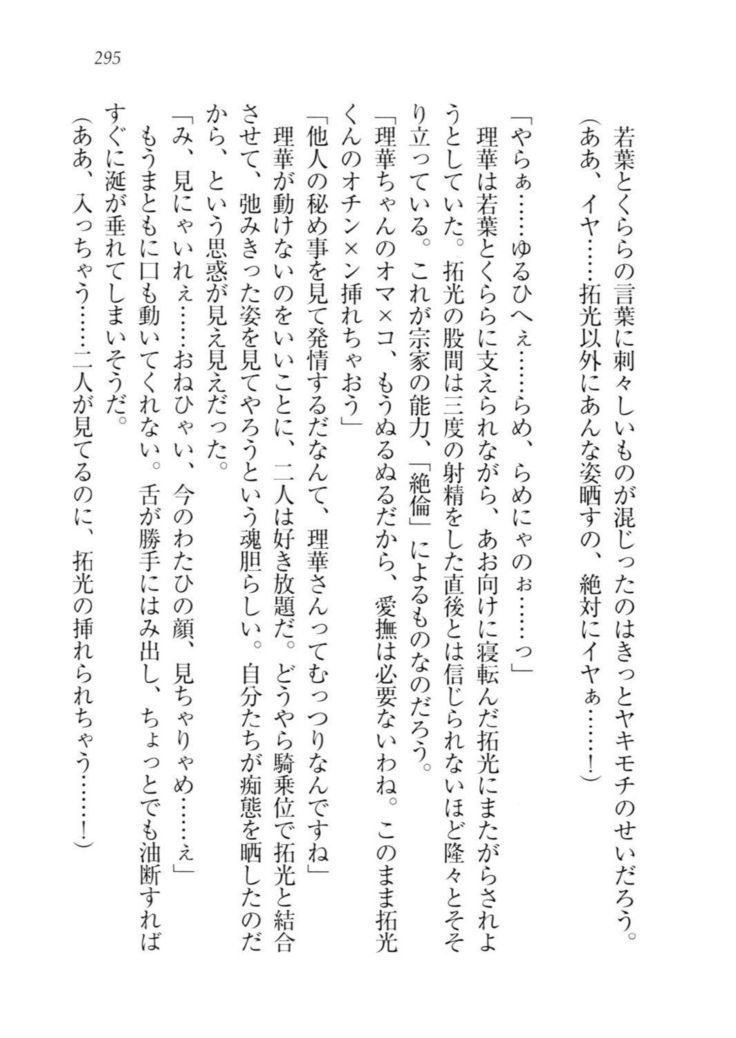 295
若葉とくららの言葉に刺々しいものが混じったのはきっとヤキモチのせいだろう。
(ああ、イヤ……拓光以外にあんな姿晒すの、絶対にイヤぁ……!)
「やらぁ……ゆるひへぇ……らめ、らめにゃのぉ……っ」
理華は若葉とくららに支えられながら、あお向けに寝転んだ拓光にまたがらされよ
うとしていた。拓光の股間は三度の射精をした直後とは信じられないほど隆々とそそ
り立っている。これが宗家の能力、「絶倫」によるものなのだろう。
「理華ちゃんのオマ×コ、もうぬるぬるだから、愛撫は必要ないわね。このまま拓光
くんのオチン×ン挿れちゃおう」
「他人の秘め事を見て発情するだなんて、理華さんってむっつりなんですね」
理華が動けないのをいいことに、二人は好き放題だ。どうやら騎乗位で拓光と結合
させて、弛みきった姿を見てやろうという魂胆らしい。自分たちが痴態を晒したのだ
から、という思惑が見え見えだった。
「み、見にゃいれぇ……おねひゃい、今のわたひの顔、見ちゃりゃめ……ぇ」
もうまともに口も動いてくれない。舌が勝手にはみ出し、ちょっとでも油断すれば
すぐに涎が垂れてしまいそうだ。
(ああ、入っちゃう……二人が見てるのに、拓光の挿れられちゃう……!)